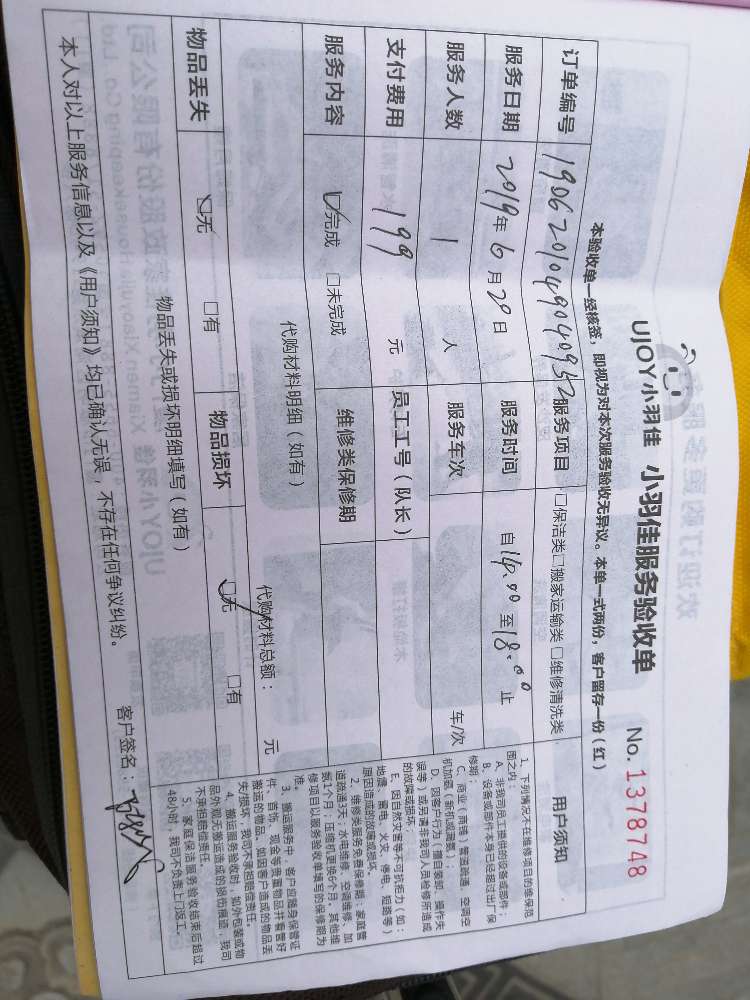 UJOY小羽佳 小羽佳服务验收单 No. 1378748
本验收单一经核签，即视为对本次服务验收无异议。本单一式两份，客户留存一份（红）
订单编号 1906201049040952 服务项目 □保洁类□搬家运输类□维修清洗类
服务日期 2019年6月20日 服务时间 自14.00至18.00止
服务人数 1 人 服务车次 车/次
支付费用 199 元 员工工号（队长）
服务内容 ☑完成 □未完成 维修类保修期
代购材料明细（如有） 代购材料总额： 元
物品丢失 ☑无 □有 物品损坏 ☑无 □有
物品丢失或损坏明细填写（如有）
本人对以上服务信息以及《用户须知》均已确认无误，不存在任何争议纠纷。 客户签名：
用户须知
1、下列情况不在维修项目的维保范
围之内：
A、非我司员工提供的设备或部件；
B、设备或部件本身已经超过出厂保
修期；
C、商业（商铺）管道疏通，空调空
机加氟（新机或漏氟）；
D、因客户行为（擅自装卸、操作失
误等）或另请非我司人员检修所造成
的故障或损坏；
E、因自然灾害等不可抗拒力（如：
地震、雷电、火灾、停电、短路等）
原因造成的故障或损坏。
2、维修类服务免费保修期：家庭管
道疏通3天；水电维修、空调维修、加
氨1个月；压缩机更换6个月，其他维
修项目以服务验收单填写的保修期为
准。
3、搬运服务中，客户应随身保管证
件、首饰、现金等贵重物品并看管好
搬运的物品。如因客户造成的物品丢
失损坏，我司不承担赔偿责任。
4、搬运服务验收时，如外包装或物
品外观无搬运造成的损伤痕迹，我司
不承担赔偿责任。
5、家庭保洁服务验收结束后超过
48小时，我司不负责上门返工。